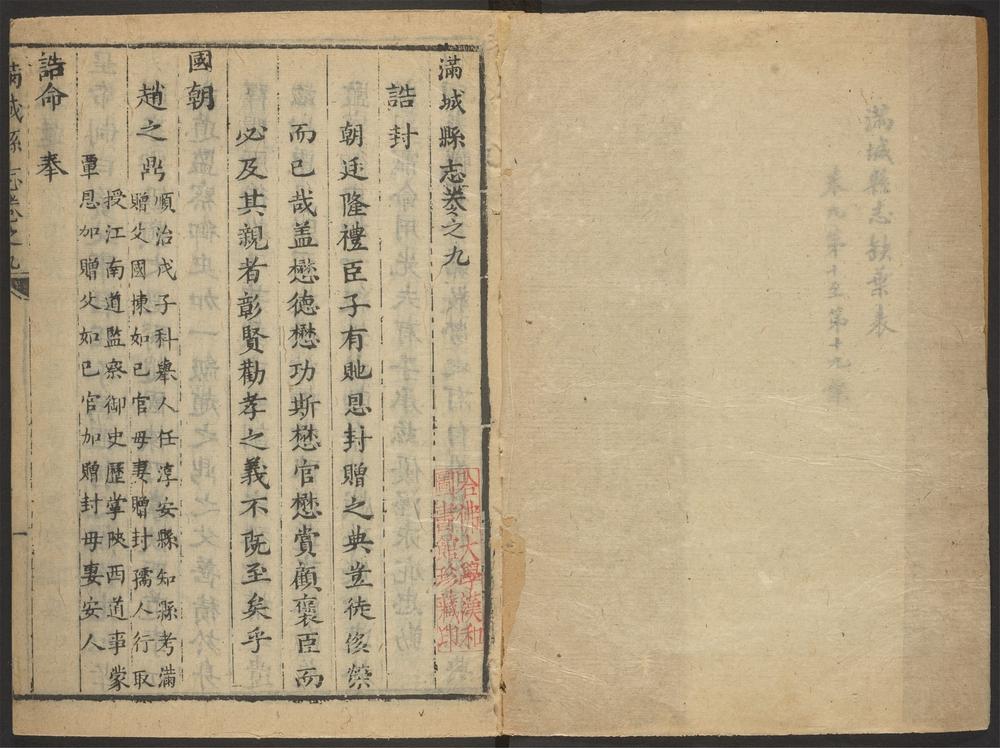 滿城縣志缺葉表
朱九第十至第十九葉
滿城縣志卷之九
誥封
朝廷隆禮臣子有貤恩封贈之典豈徒侈榮
而已哉盖懋德懋功斯懋官懋賞顧褒臣而
必及其親者彰賢勸孝之義不既至矣乎
國朝
趙之鼎
順治戊子科舉人任淳安縣知縣考滿
贈父國棟如己官母妻贈封孺人行取
授江南道監察御史歷掌陝西道事蒙
覃恩加贈父如己官加贈封母妻安人
誥命奉
滿城縣志卷之九
一
哈佛大學漢和
圖書館珍藏印